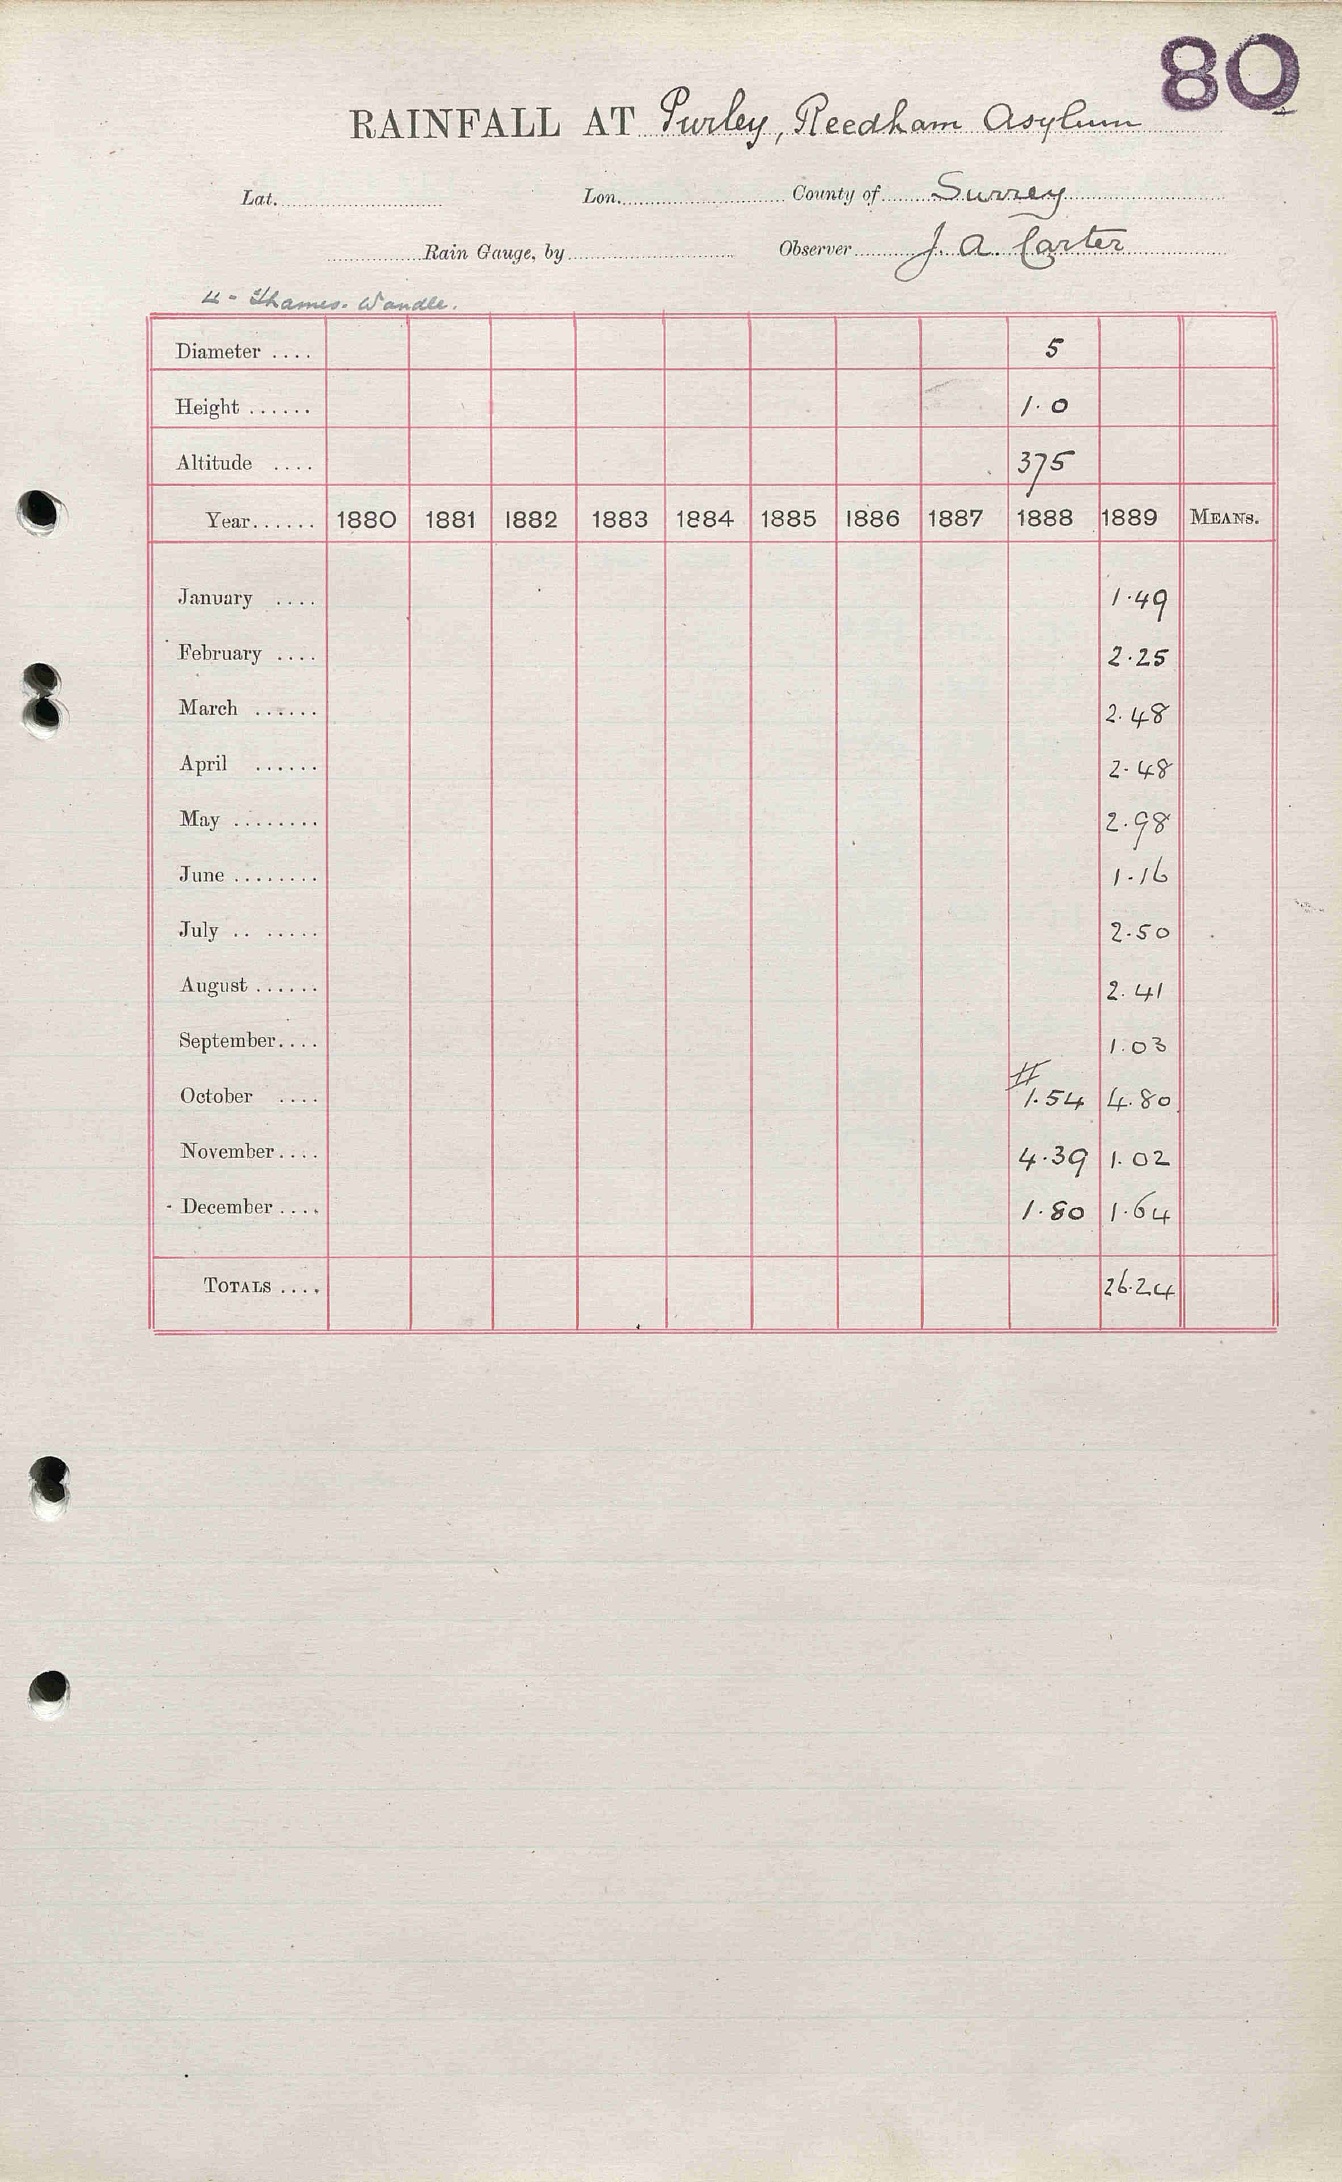 80
RAINFALL AT Purley, Reedham Asylum
Lat. Lon. County of Surrey
Rain Gauge, by Observer J. A. Carter
4 - Thames. Wandle.
Diameter .... 5
Height ...... 1.0
Altitude .... 375
Year...... 1880 1881 1882 1883 1884 1885 1886 1887 1888 1889 MEANS.
January .... 1.49
February .... 2.25
March ...... 2.48
April ...... 2.48
May ........ 2.98
June ........ 1.16
July .. ..... 2.50
August ...... 2.41
September.... 1.03
#
October .... 1.54 4.80
November.... 4.39 1.02
December .... 1.80 1.64
TOTALS .... 26.24